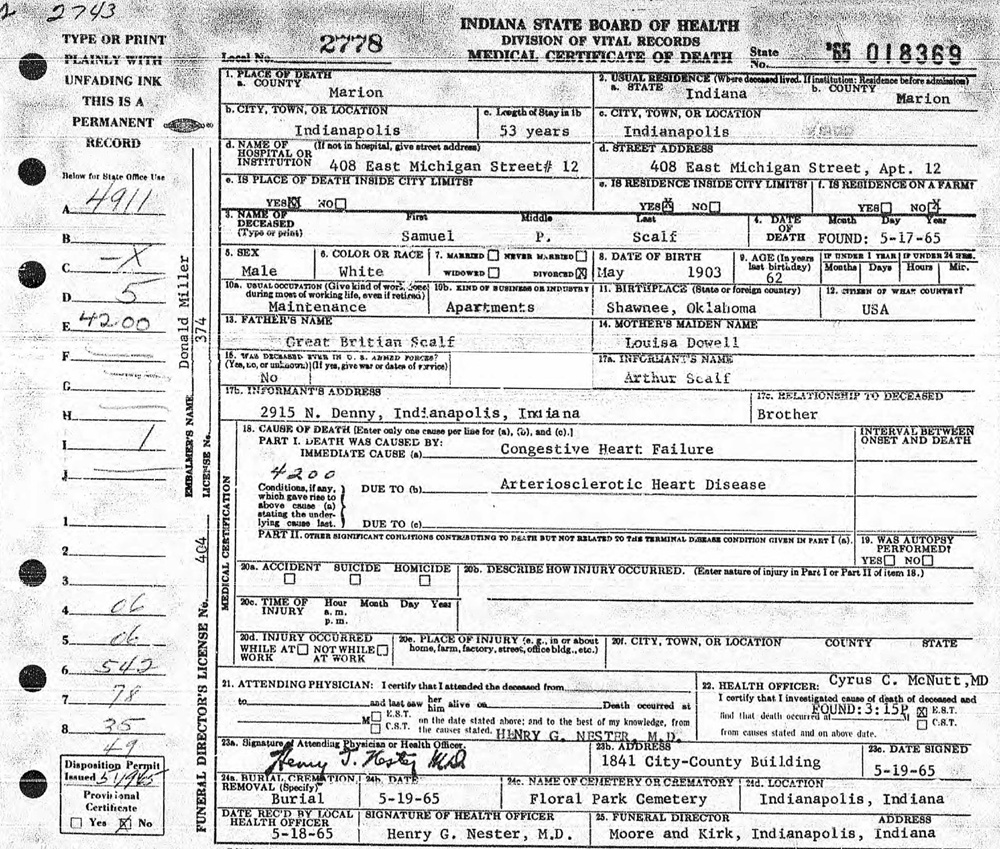 2743
TYPE OR PRINT
PLAINLY WITH
UNFADING INK
THIS IS A
PERMANENT
RECORD
Below for State Office Use
A 4911
B
C -X
D 5
E 4200
F
G
H
I 1
J
1
2
3
4 06
5 06
6 542
7 78
8 35
49
Disposition Permit
Issued
Provisional
Certificate
Yes No
EMBALMER'S NAME Donald Miller
LICENSE No. 374
FUNERAL DIRECTOR'S LICENSE No. 404
INDIANA STATE BOARD OF HEALTH
DIVISION OF VITAL RECORDS
MEDICAL CERTIFICATE OF DEATH
Local No. 2778
State No. '65 018369
1. PLACE OF DEATH
a. COUNTY
Marion
2. USUAL RESIDENCE (Where deceased lived. If institution: Residence before admission)
a. STATE Indiana b. COUNTY Marion
b. CITY, TOWN, OR LOCATION
Indianapolis
c. Length of Stay in 1b
53 years
c. CITY, TOWN, OR LOCATION
Indianapolis
d. NAME OF HOSPITAL OR INSTITUTION (If not in hospital, give street address)
408 East Michigan Street# 12
d. STREET ADDRESS
408 East Michigan Street, Apt. 12
e. IS PLACE OF DEATH INSIDE CITY LIMITS?
YES X NO
e. IS RESIDENCE INSIDE CITY LIMITS?
YES X NO
f. IS RESIDENCE ON A FARM?
YES NO X
3. NAME OF DECEASED (Type or print)
First Middle Last
Samuel P. Scalf
4. DATE OF DEATH
Month Day Year
FOUND: 5-17-65
5. SEX
Male
6. COLOR OR RACE
White
7. MARRIED NEVER MARRIED
WIDOWED DIVORCED X
8. DATE OF BIRTH
May 1903
9. AGE (In years last birthday)
62
IF UNDER 1 YEAR
Months Days
IF UNDER 24 HRS.
Hours Min.
10a. USUAL OCCUPATION (Give kind of work done during most of working life, even if retired)
Maintenance
10b. KIND OF BUSINESS OR INDUSTRY
Apartments
11. BIRTHPLACE (State or foreign country)
Shawnee, Oklahoma
12. CITIZEN OF WHAT COUNTRY?
USA
13. FATHER'S NAME
Great Britian Scalf
14. MOTHER'S MAIDEN NAME
Louisa Dowell
15. WAS DECEASED EVER IN U. S. ARMED FORCES?
(Yes, no, or unknown) (If yes, give war or dates of service)
No
17a. INFORMANT'S NAME
Arthur Scalf
17b. INFORMANT'S ADDRESS
2915 N. Denny, Indianapolis, Indiana
17c. RELATIONSHIP TO DECEASED
Brother
MEDICAL CERTIFICATION
18. CAUSE OF DEATH [Enter only one cause per line for (a), (b), and (c).]
PART I. DEATH WAS CAUSED BY:
IMMEDIATE CAUSE (a) Congestive Heart Failure
INTERVAL BETWEEN ONSET AND DEATH
4200
Conditions, if any, which gave rise to above cause (a) stating the underlying cause last.
DUE TO (b) Arteriosclerotic Heart Disease
DUE TO (c)
PART II. OTHER SIGNIFICANT CONDITIONS CONTRIBUTING TO DEATH BUT NOT RELATED TO THE TERMINAL DISEASE CONDITION GIVEN IN PART I (a).
19. WAS AUTOPSY PERFORMED?
YES NO
20a. ACCIDENT SUICIDE HOMICIDE
20b. DESCRIBE HOW INJURY OCCURRED. (Enter nature of injury in Part I or Part II of item 18.)
20c. TIME OF INJURY
Hour Month Day Year
a. m.
p. m.
20d. INJURY OCCURRED
WHILE AT WORK NOT WHILE AT WORK
20e. PLACE OF INJURY (e. g., in or about home, farm, factory, street, office bldg., etc.)
20f. CITY, TOWN, OR LOCATION COUNTY STATE
21. ATTENDING PHYSICIAN: I certify that I attended the deceased from
to and last saw her him alive on Death occurred at
M E.S.T. C.S.T. on the date stated above; and to the best of my knowledge, from the causes stated.
HENRY G. NESTER, M.D.
22. HEALTH OFFICER: Cyrus C. McNutt, MD
I certify I investigated cause of death of deceased and
find that death occurred at FOUND: 3:15P M X E.S.T. C.S.T.
from causes stated and on above date.
23a. Signature of Attending Physician or Health Officer.
23b. ADDRESS
1841 City-County Building
23c. DATE SIGNED
5-19-65
24a. BURIAL, CREMATION, REMOVAL (Specify)
Burial
24b. DATE
5-19-65
24c. NAME OF CEMETERY OR CREMATORY
Floral Park Cemetery
24d. LOCATION
Indianapolis, Indiana
DATE REC'D BY LOCAL HEALTH OFFICER
5-18-65
SIGNATURE OF HEALTH OFFICER
Henry G. Nester, M.D.
25. FUNERAL DIRECTOR ADDRESS
Moore and Kirk, Indianapolis, Indiana